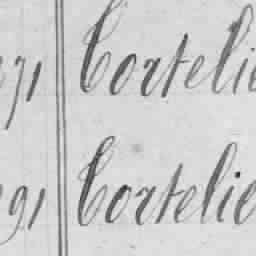 71 Cortelie
91 Cortelie